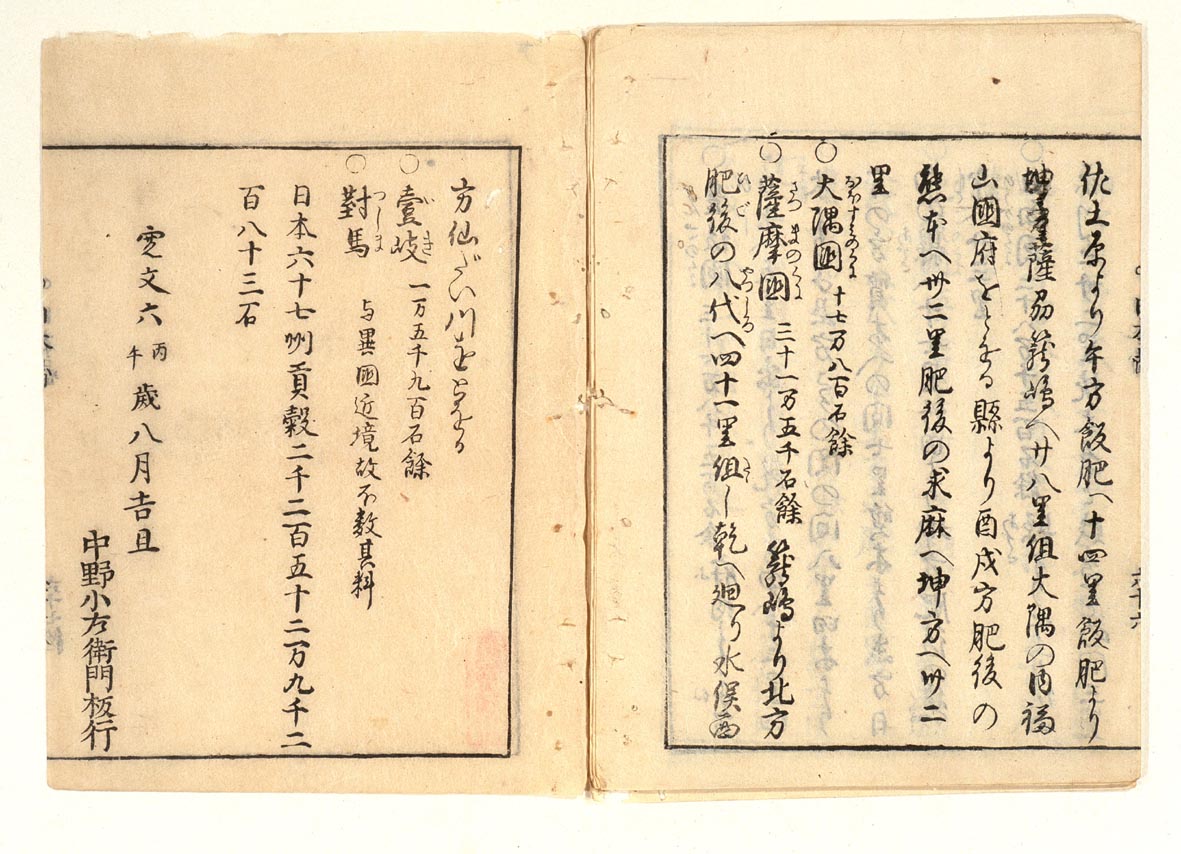 佐土原より午方飫肥へ十四里飫肥より
坤方薩易篭嶋へ廿八里組大隅の内福
山國府をとをる縣より酉戌方肥後の
熊本へ卅二里肥後の求麻へ坤方へ卅二
里
○大隅國 十七万八百石餘
○薩摩國 三十一万五千石餘 篭嶋より北方
肥後の八代へ四十一里組し乾へ廻り水俣西
方仙だい川をとをる
○壹岐 一万五千九百石餘
○對馬 与異國近境故不数其料
日本六十七州貢穀二千二百五十二万九千二
百八十三石
寛文六丙午歳八月吉旦
中野小左衛門板行